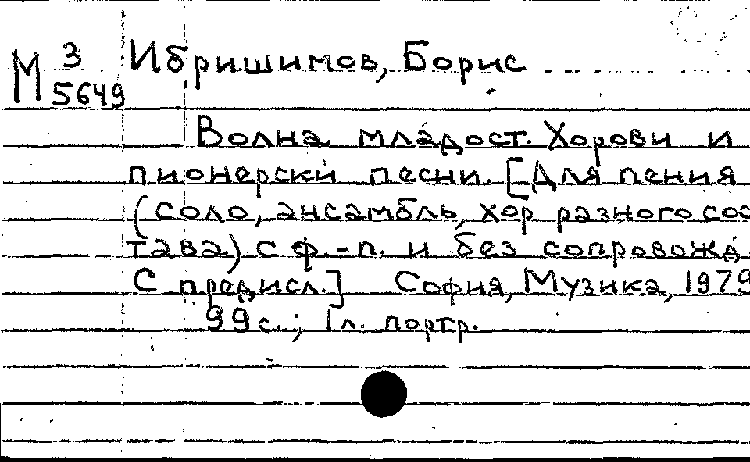 М 3 Ибришимов, Борис
5649
Волна младост. Хорови и
пионерски песни. [Для пения
(соло, ансамбль, хор разного сос
тава) с ф.-п. и без сопровожд.
С предисл.] София, Музика, 1979
99 с.; 1 л. портр.